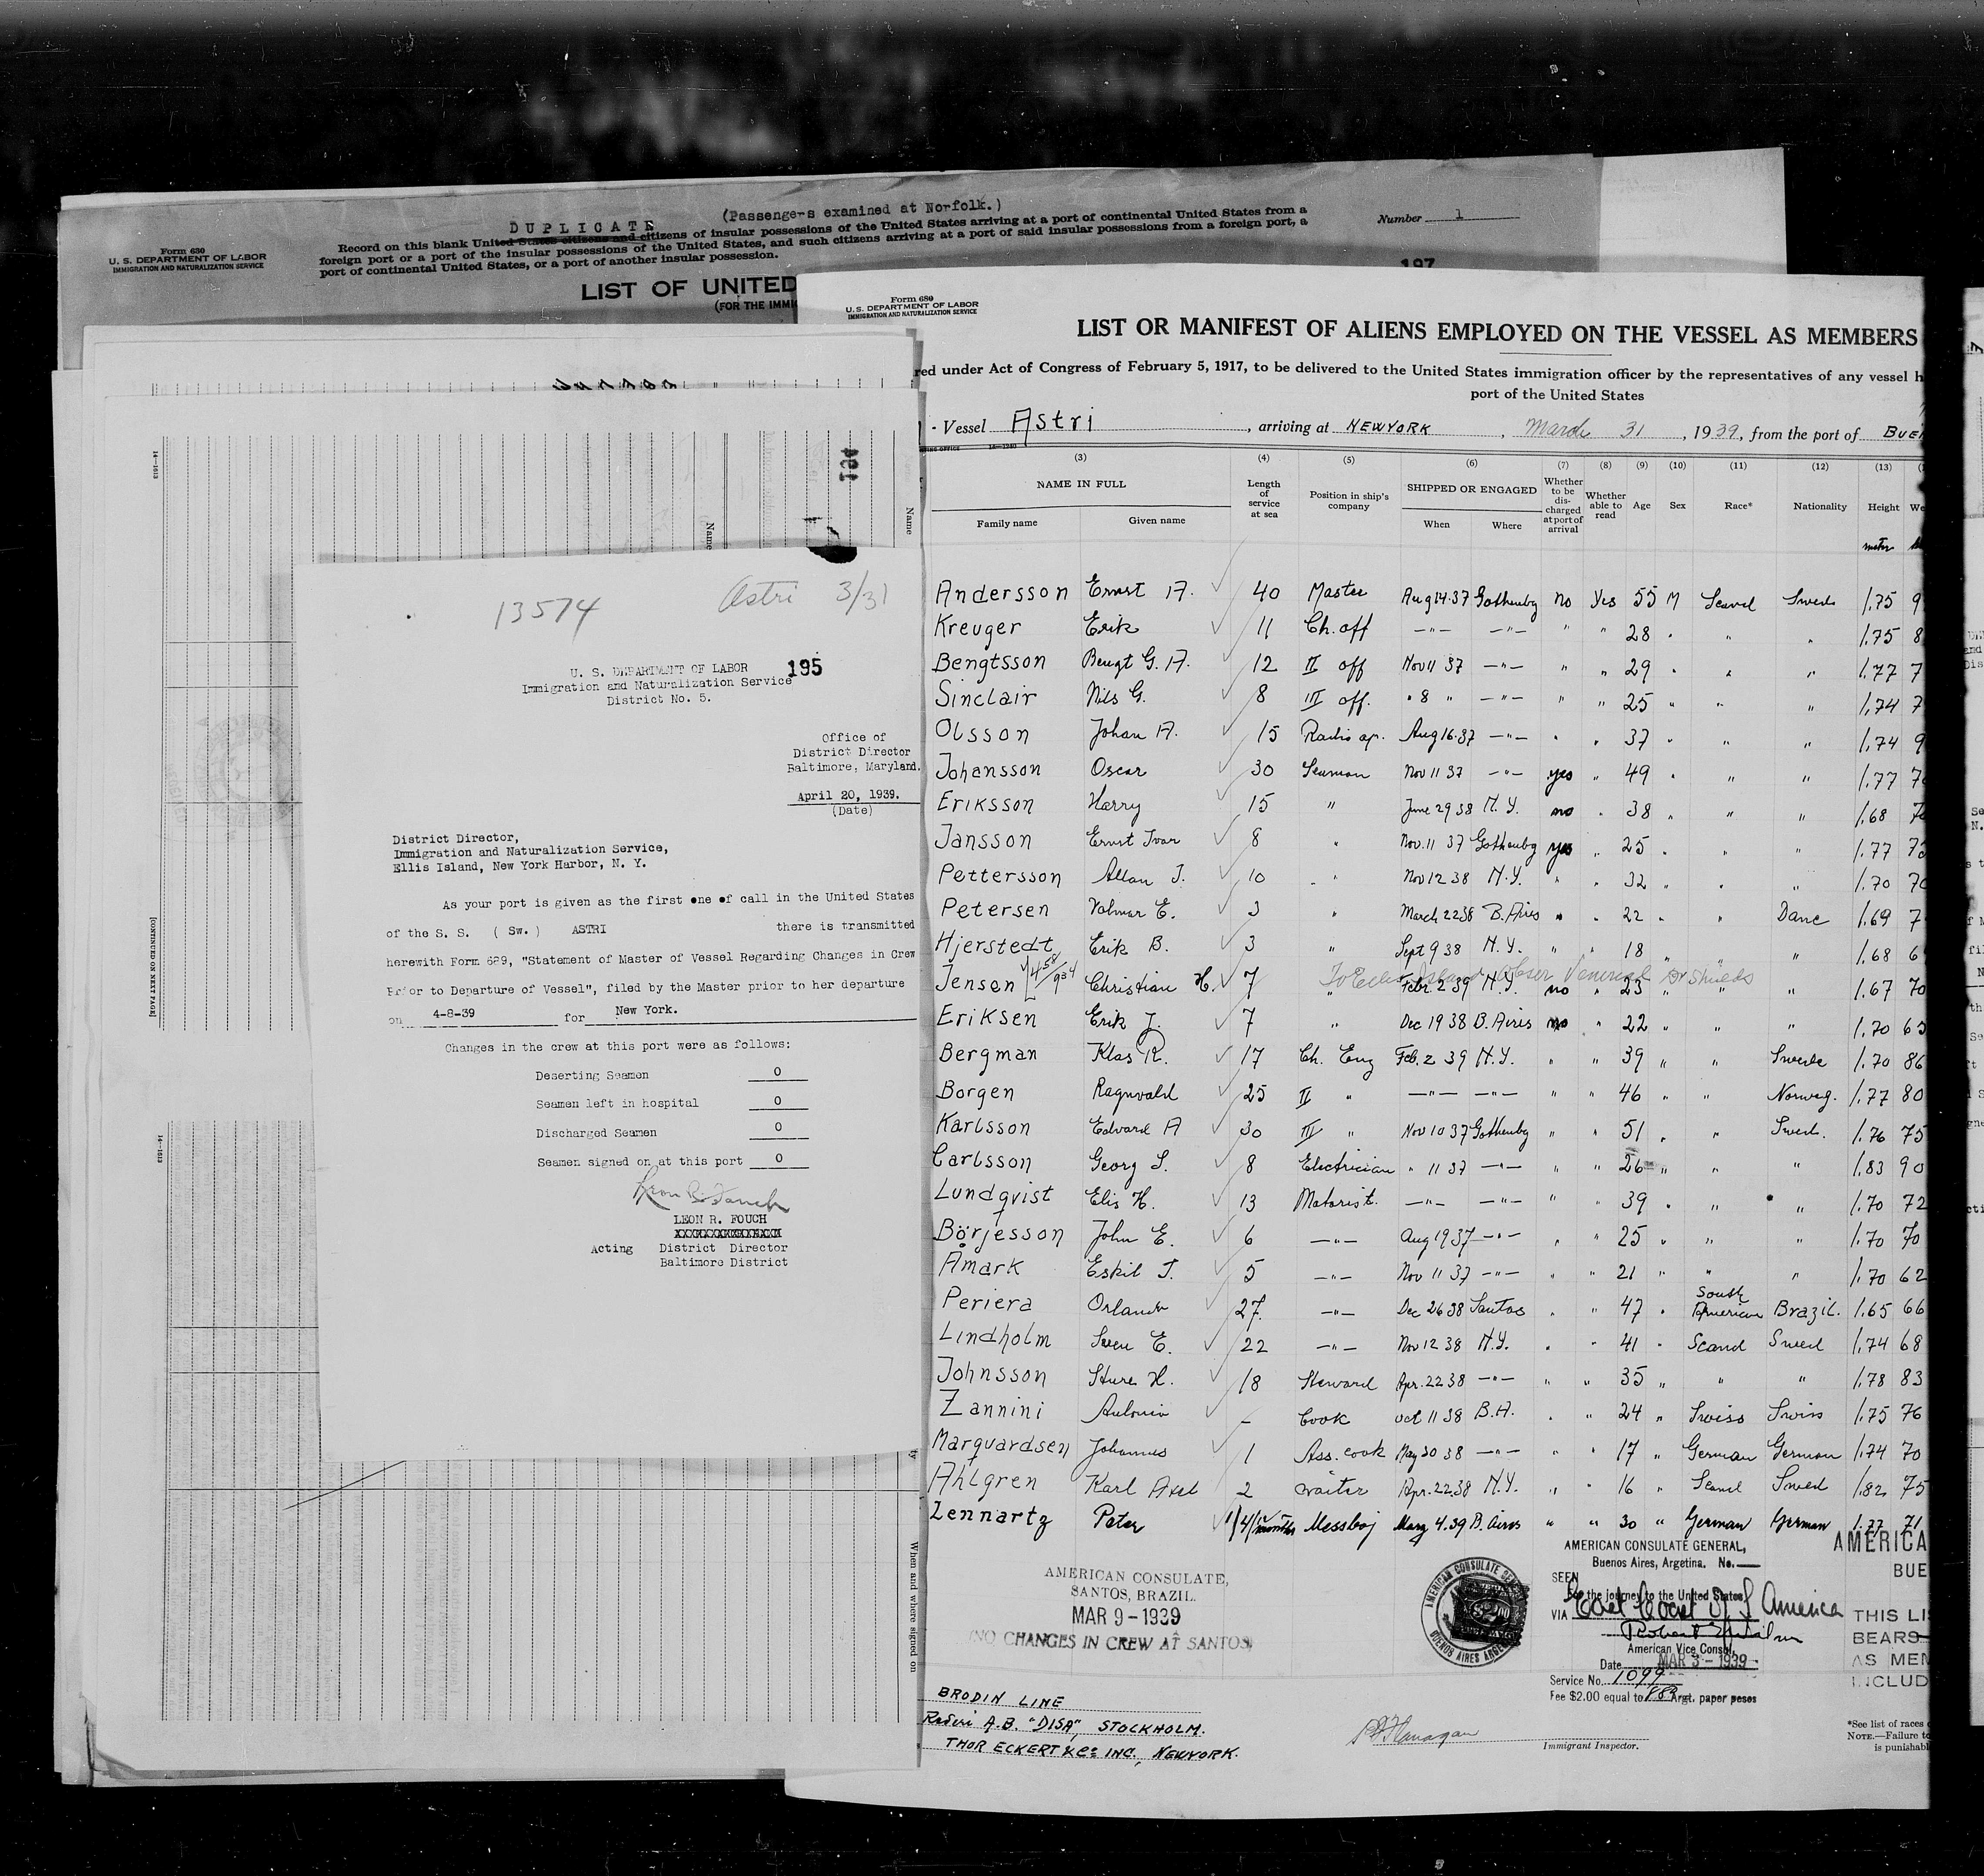 DUPLICATE
(Passengers examined at Norfolk.)
Number 1
Form 630
U. S. DEPARTMENT OF LABOR
IMMIGRATION AND NATURALIZATION SERVICE
Record on this blank United States citizens and citizens of insular possessions of the United States arriving at a port of continental United States from a
foreign port or a port of the insular possessions of the United States, and such citizens arriving at a port of said insular possessions from a foreign port, a
port of continental United States, or a port of another insular possession.
197
LIST OF UNITED
(FOR THE IMMI
14-1613
194
Name
Name
[CONTINUED ON NEXT PAGE]
14-1613
When and where signed on
13574
Astri 3/31
U. S. DEPARTMENT OF LABOR 195
Immigration and Naturalization Service
District No. 5.
Office of
District Director
Baltimore, Maryland.
April 20, 1939.
(Date)
District Director,
Immigration and Naturalization Service,
Ellis Island, New York Harbor, N. Y.
As your port is given as the first one of call in the United States
of the S. S. ( Sw. ) ASTRI there is transmitted
herewith Form 689, "Statement of Master of Vessel Regarding Changes in Crew
Prior to Departure of Vessel", filed by the Master prior to her departure
on 4-8-39 for New York.
Changes in the crew at this port were as follows:
Deserting Seamen 0
Seamen left in hospital 0
Discharged Seamen 0
Seamen signed on at this port 0
Leon R. Fouch
LEON R. FOUCH
Acting District Director
Baltimore District
Form 680
U. S. DEPARTMENT OF LABOR
IMMIGRATION AND NATURALIZATION SERVICE
LIST OR MANIFEST OF ALIENS EMPLOYED ON THE VESSEL AS MEMBERS
red under Act of Congress of February 5, 1917, to be delivered to the United States immigration officer by the representatives of any vessel h
port of the United States
Vessel Astri, arriving at NEWYORK, March 31, 1939, from the port of BUE
(3) (4) (5) (6) (7) (8) (9) (10) (11) (12) (13)
NAME IN FULL Length of service at sea Position in ship's company SHIPPED OR ENGAGED Whether to be discharged at port of arrival Whether able to read Age Sex Race* Nationality Height We
Family name Given name When Where
meter
Andersson Ernst A. 40 Master Aug 14-37 Gothenbg no Yes 55 M Scand Swede 1.75 9
Kreuger Erik 11 Ch. off —"— —"— " " 28 " " " 1.75 8
Bengtsson Bengt G. A. 12 II off Nov 11 37 —"— " " 29 " " " 1.77 7
Sinclair Nils G. 8 III off. " 8 " —"— " " 25 " " " 1.74 7
Olsson Johan A. 15 Radio op. Aug 16-37 —"— " " 37 " " " 1.74 9
Johansson Oscar 30 Seaman Nov 11 37 —"— yes " 49 " " " 1.77 7
Eriksson Harry 15 " June 29 38 N.Y. no " 38 " " " 1.68 7
Jansson Ernst Ivar 8 " Nov. 11 37 Gothenbg yes " 25 " " " 1.77 73
Pettersson Allan J. 10 " Nov 12 38 N.Y. " " 32 " " " 1.70 70
Petersen Valmar E. 3 " March 22 38 B. Aires " " 22 " " Dane 1.69 7
Hjerstedt Erik B. 3 " Sept 9 38 N.Y. " " 18 " " " 1.68 6
To Ellis Island Venereal Dr Shields
Jensen Christian H. 7 " Febr. 2 39 N.Y. no " 23 " " " 1.67 70
Eriksen Erik J. 7 " Dec 19 38 B. Aires no " 22 " " " 1.70 65
Bergman Klas R. 17 Ch. Eng Feb. 2 39 N.Y. " " 39 " " Swede 1.70 86
Borgen Ragnvald 25 II " —"— —"— " " 46 " " Norweg. 1.77 80
Karlsson Edvard A 30 III " Nov 10 37 Gothenbg " " 51 " " Swed. 1.76 75
Carlsson Georg S. 8 Electrician " 11 37 —"— " " 26 " " " 1.83 90
Lundqvist Elis H. 13 Motorist. —"— —"— " " 39 " " " 1.70 72
Börjesson John E. 6 —"— Aug 19 37 —"— " " 25 " " " 1.70 70
Åmark Eskil T. 5 —"— Nov 11 37 —"— " " 21 " " " 1.70 62
Periera Orlando 27. —"— Dec 26 38 Santos " " 47 " South American Brazil. 1.65 66
Lindholm Sven E. 22 —"— Nov 12 38 N.Y. " " 41 " Scand Swed 1.74 68
Johnsson Sture H. 18 Steward Apr. 22 38 —"— " " 35 " " " 1.78 83
Zannini Antonio – Cook oct 11 38 B.A. " " 24 " Swiss Swiss 1.75 76
Marquardsen Johannes 1 Ass. cook May 30 38 —"— " " 17 " German German 1.74 70
Ahlgren Karl Axel 2 waiter Apr. 22.38 N.Y. " " 16 " Scand Swed 1.82 75
Lennartz Peter 1/4/months Messboj Marz 4.39 B. Aires " " 30 " German German 1.77 71
AMERICAN CONSULATE,
SANTOS, BRAZIL.
MAR 9-1939
(NO CHANGES IN CREW AT SANTOS)
AMERICAN CONSULATE GENERAL
BUENOS AIRES ARGENTINA
AMERICAN CONSULATE GENERAL,
Buenos Aires, Argetina. No.
SEEN
For the journey to the United States
VIA East Coast of S America
American Vice Consul.
Date MAR 3-1939
Service No. 1099
Fee $2.00 equal to Argt. paper pesos
AMERICA
BUE
THIS LI
BEARS
AS MEM
INCLUD
BRODIN LINE
Rederi A.B. "DISA", STOCKHOLM.
THOR ECKERT & Co INC., NEWYORK.
Flanagan
Immigrant Inspector.
*See list of races
NOTE.—Failure to
is punishabl